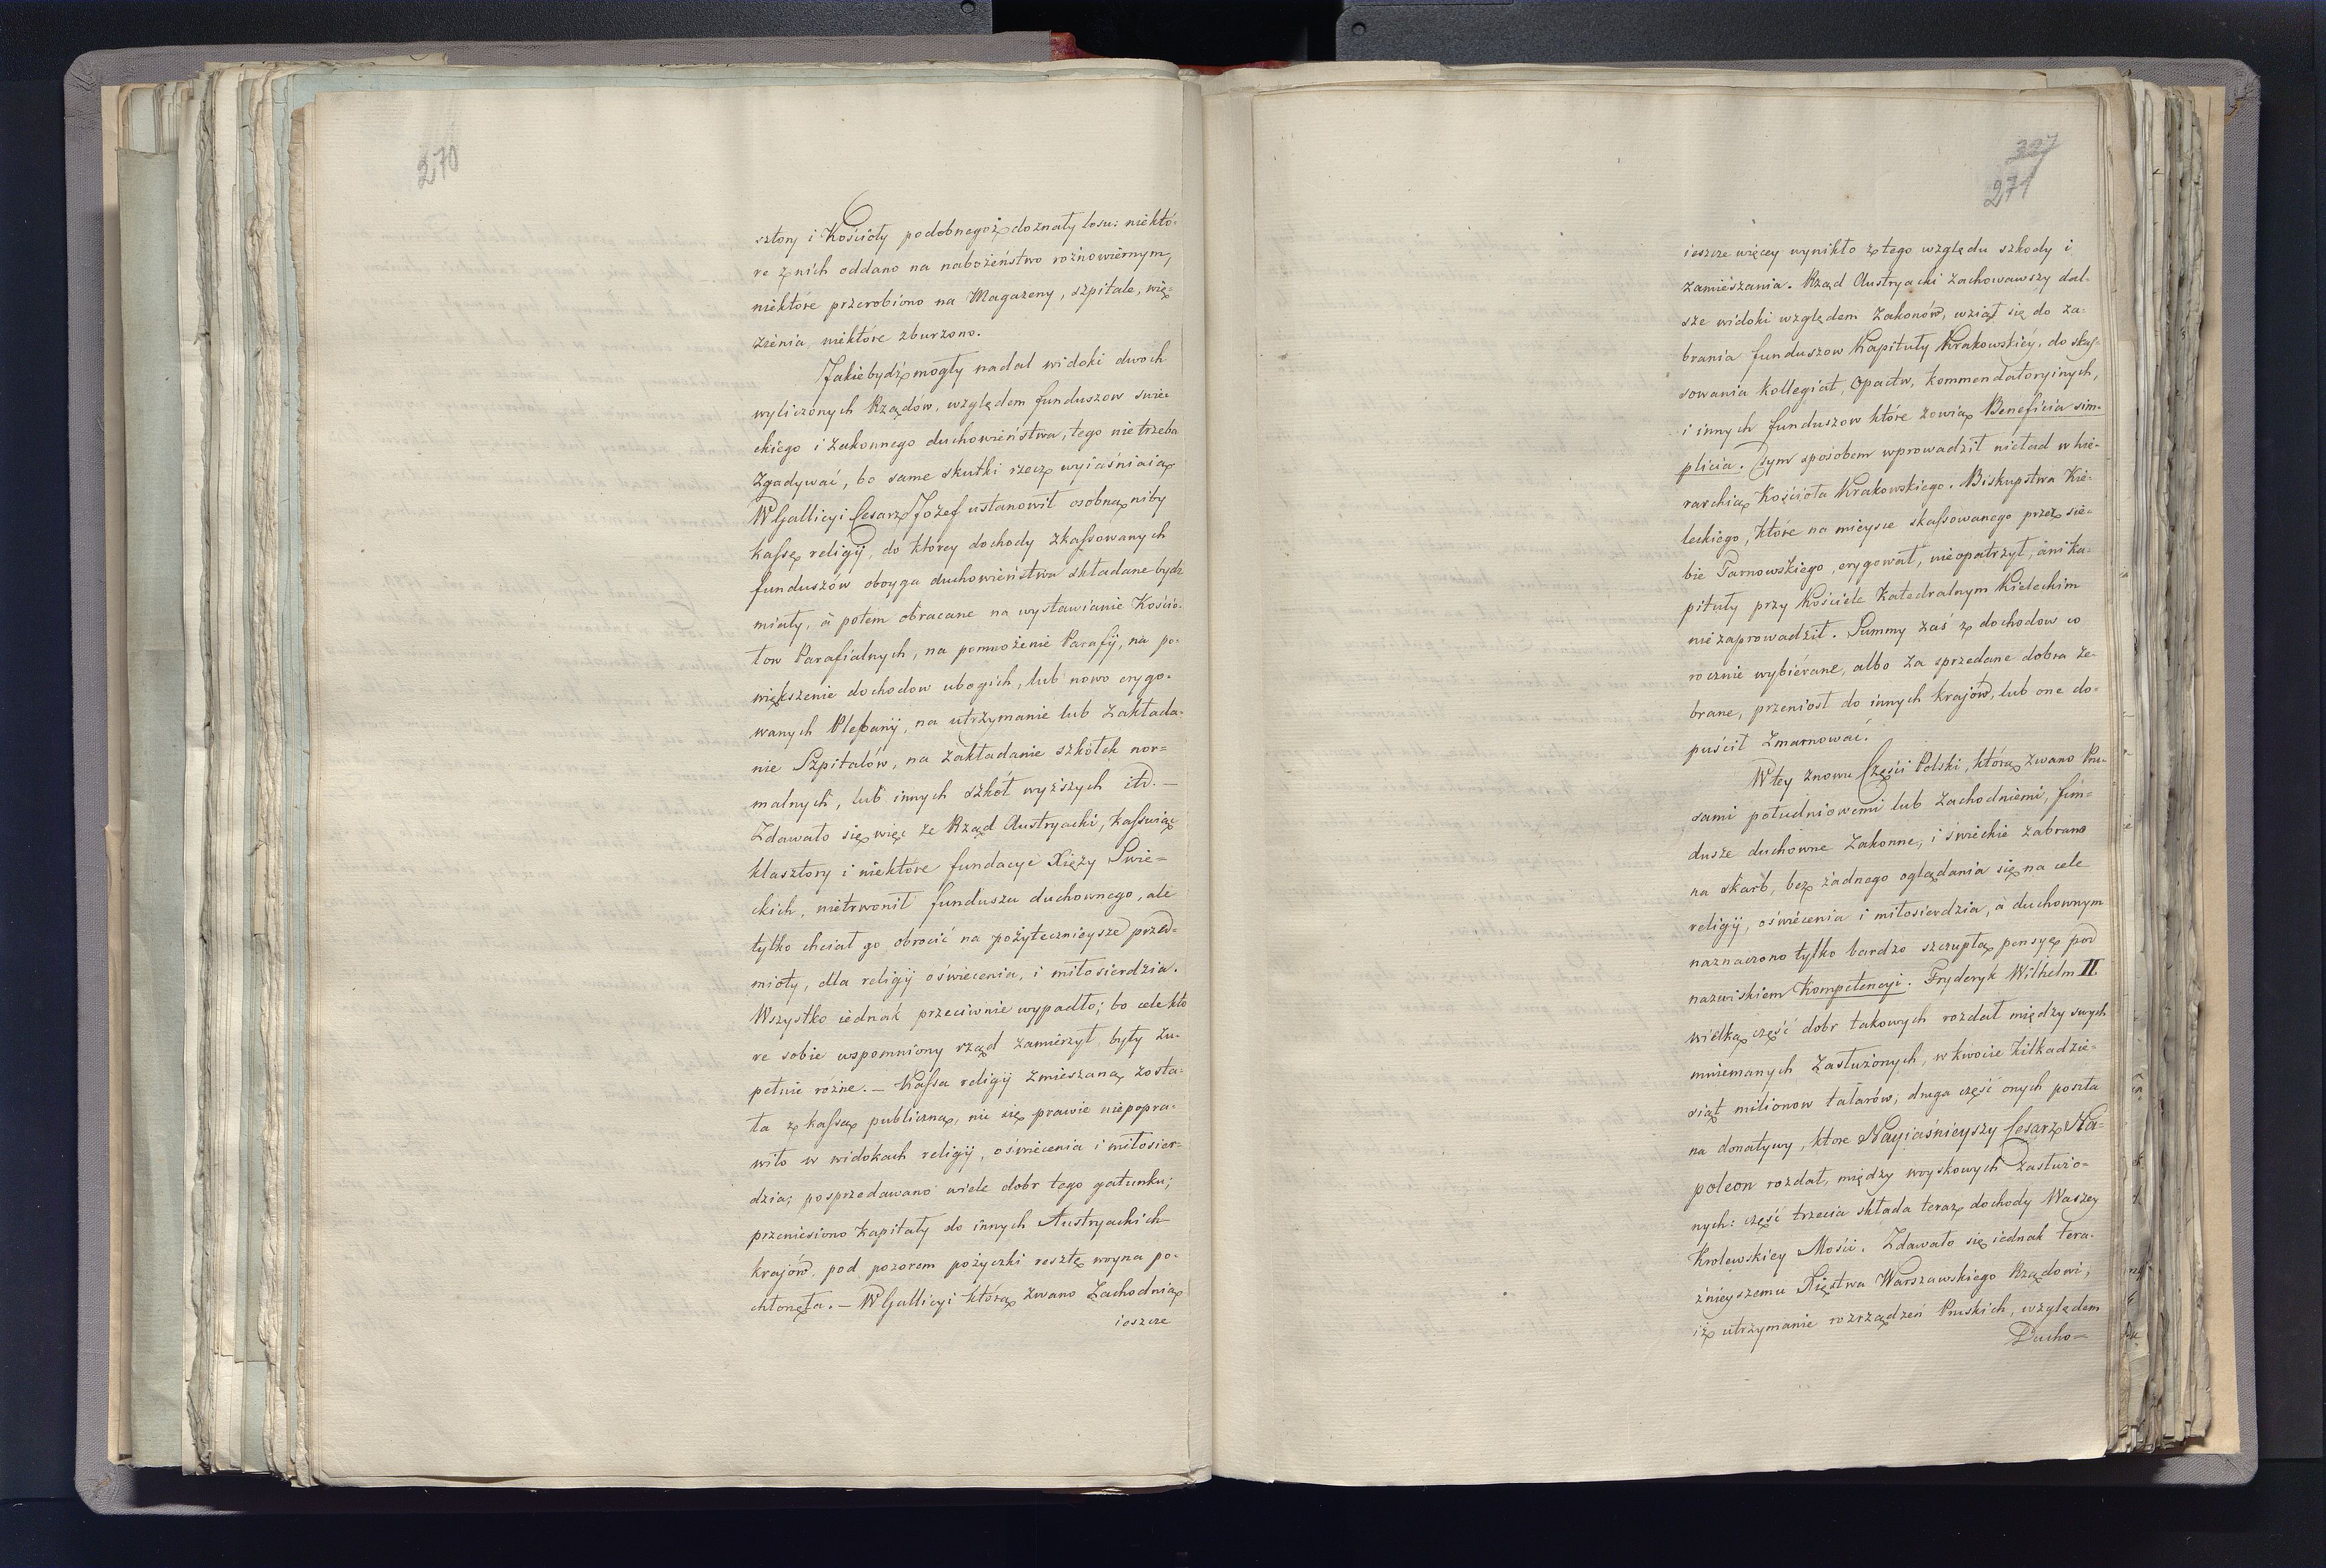 270
sztory i Kościoły podobnegoż doznały losu: niektó-
re z nich oddano na nabożeństwo roznowiernym,
niektóre przerobiono na Magazeny, szpitale, wię-
zienia, niektóre zburzono.
Jakiebydź mogły nadal widoki dwoch
wyliczonych Rządów, względem funduszow swie-
ckiego i zakonnego duchowieństwa, tego nie trzeba
zgadywać, bo same skutki rzecz wyiaśniaią
W Gallicyi Cesarz Jozef ustanowił osobną niby
kassę religij, do którey dochody zkassowanych
funduszów oboyga duchowieństwa składane bydź
miały, à potem obracane na wystawianie Kościo-
łow Parafialnych, na pomnożenie Parafij, na po-
większenie dochodow ubogich, lub nowo erygo-
wanych Plebanij, na utrzymanie lub zakłada-
nie Szpitalów, na zakładanie szkółek nor=
malnych, lub innych szkół wyższych itd. —
Zdawało się więc że Rząd Austryacki, kassuiąc
klasztory i niektóre fundacye Xięży Swie=
ckich, nietrwonił funduszu duchownego, ale
tylko chciał go obrocić na pożytecznieysze przed-
mioty, dla religij oświecenia, i miłosierdzia.
Wszystko iednak przeciwnie wypadło; bo cele któ
re sobie wspomniony rząd zamierzył, były zu-
pełnie różne. — Kassa religij zmieszaną zosta-
ła z kassą publiczną, nic się prawie niepopra-
wiło w widokach religij, oświecenia i miłosier-
dzia; posprzedawano wiele dobr tego gatunku;
przeniesiono kapitały do innych Austryackich
krajów, pod pozorem pożyczki resztę woyna po-
chłonęła. — W Gallicyi którą zwano Zachodnią
ieszcze
327
271
ieszcze więcey wynikło z tego względu szkody i
zamieszania. Rząd Austryacki zachowawszy dal-
sze widoki względem Zakonów, wziął się do za-
brania funduszow Kapituły Krakowskiéy, do skas-
sowania kollegiat, Opactw, kommendatoryinych,
i innych funduszow które zowią Beneficia sim-
plicia. Tym sposobem wprowadził nieład w hie-
rarchią Kościoła Krakowskiego. Biskupstwa Kie-
leckiego, które na mieysce skassowanego przez sie-
bie Tarnowskiego, erygował, nieopatrzył, ani ka-
pituły przy Kościele Katedralnym Kieleckim
nie zaprowadził. Summy zaś z dochodow co
rocznie wybiérane, albo za sprzedane dobra ze-
brane, przeniosł do innych krajów, lub one do-
puścił zmarnować.
W tey znowu Części Polski, którą zwano Pru-
sami południowemi lub zachodniemi, fun=
dusze duchowne zakonne, i świeckie zabrano
na skarb, bez żadnego oglądania się na cele
religij, oświecenia i miłosierdzia, à duchownym
naznaczono tylko bardzo szczupłą pensyę pod
nazwiskiem Kompetencyi. Fryderyk Wilhelm II
wielką część dobr takowych rozdał między swych
mniemanych zasłużonych, w kwocie kilkadzie-
siąt milionow talarów, druga część onych poszła
na donatywy, ktore Nayiaśnieyszy Cesarz Na=
poleon rozdał, między woyskowych zasłużo-
nych: część trzecia składa teraz dochody Waszey
Krolewskiey Mości. Zdawało się iednak tera-
źnieyszemu Xięstwa Warszawskiego Rządowi,
iż utrzymanie rozrządzeń Pruskich, względem
Ducho=